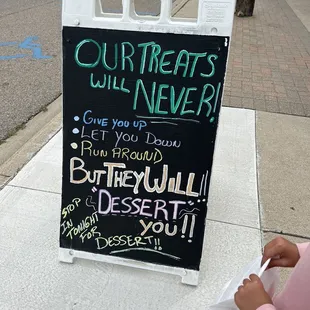 OUR TREATS
WILL
NEVER!
• GIVE YOU UP
• LET YOU DOWN
• RUN AROUND
BUT THEY WILL!!
"DESSERT"
YOU!!
STOP
IN
TONIGHT
FOR
DESSERT!!